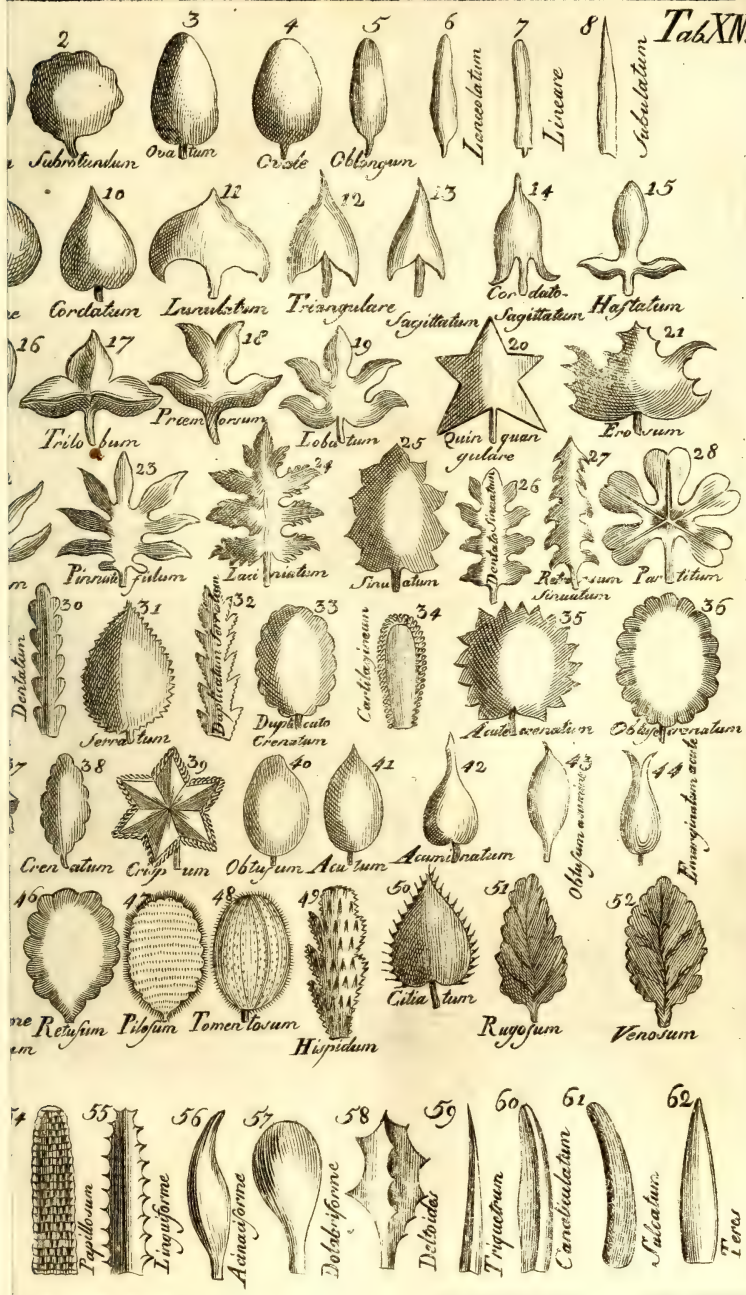 Tab. XN
2 3 4 5 6 7 8
Subrotundum Ovatum Ovale Oblongum Lanceolatum Lineare Subulatum
10 11 12 13 14 15
e Cordatum Lunulatum Triangulare Sagittatum Cordato-Sagittatum Hastatum
16 17 18 19 20 21
Trilobum Præmorsum Lobatum Quinquangulare Erosum
23 24 25 26 27 28
m Pinnatifidum Laciniatum Sinuatum Dentato Sinuatum Retrorsum Sinuatum Partitum
30 31 32 33 34 35 36
Dentatum Serratum Duplicatum Serratum Duplicato Crenatum Cartilagineum Acute crenatum Obtuse crenatum
37 38 39 40 41 42 43 44
Crenatum Crispum Obtusum Acutum Acuminatum Obtusum acumine Emarginatum acute
46 47 48 49 50 51 52
me
um Retusum Pilosum Tomentosum Hispidum Citiatum Rugosum Venosum
54 55 56 57 58 59 60 61 62
Papillosum Linguiforme Acinaciforme Dolabriforme Deltoides Triquetrum Canaliculatum Sulcatum Teres